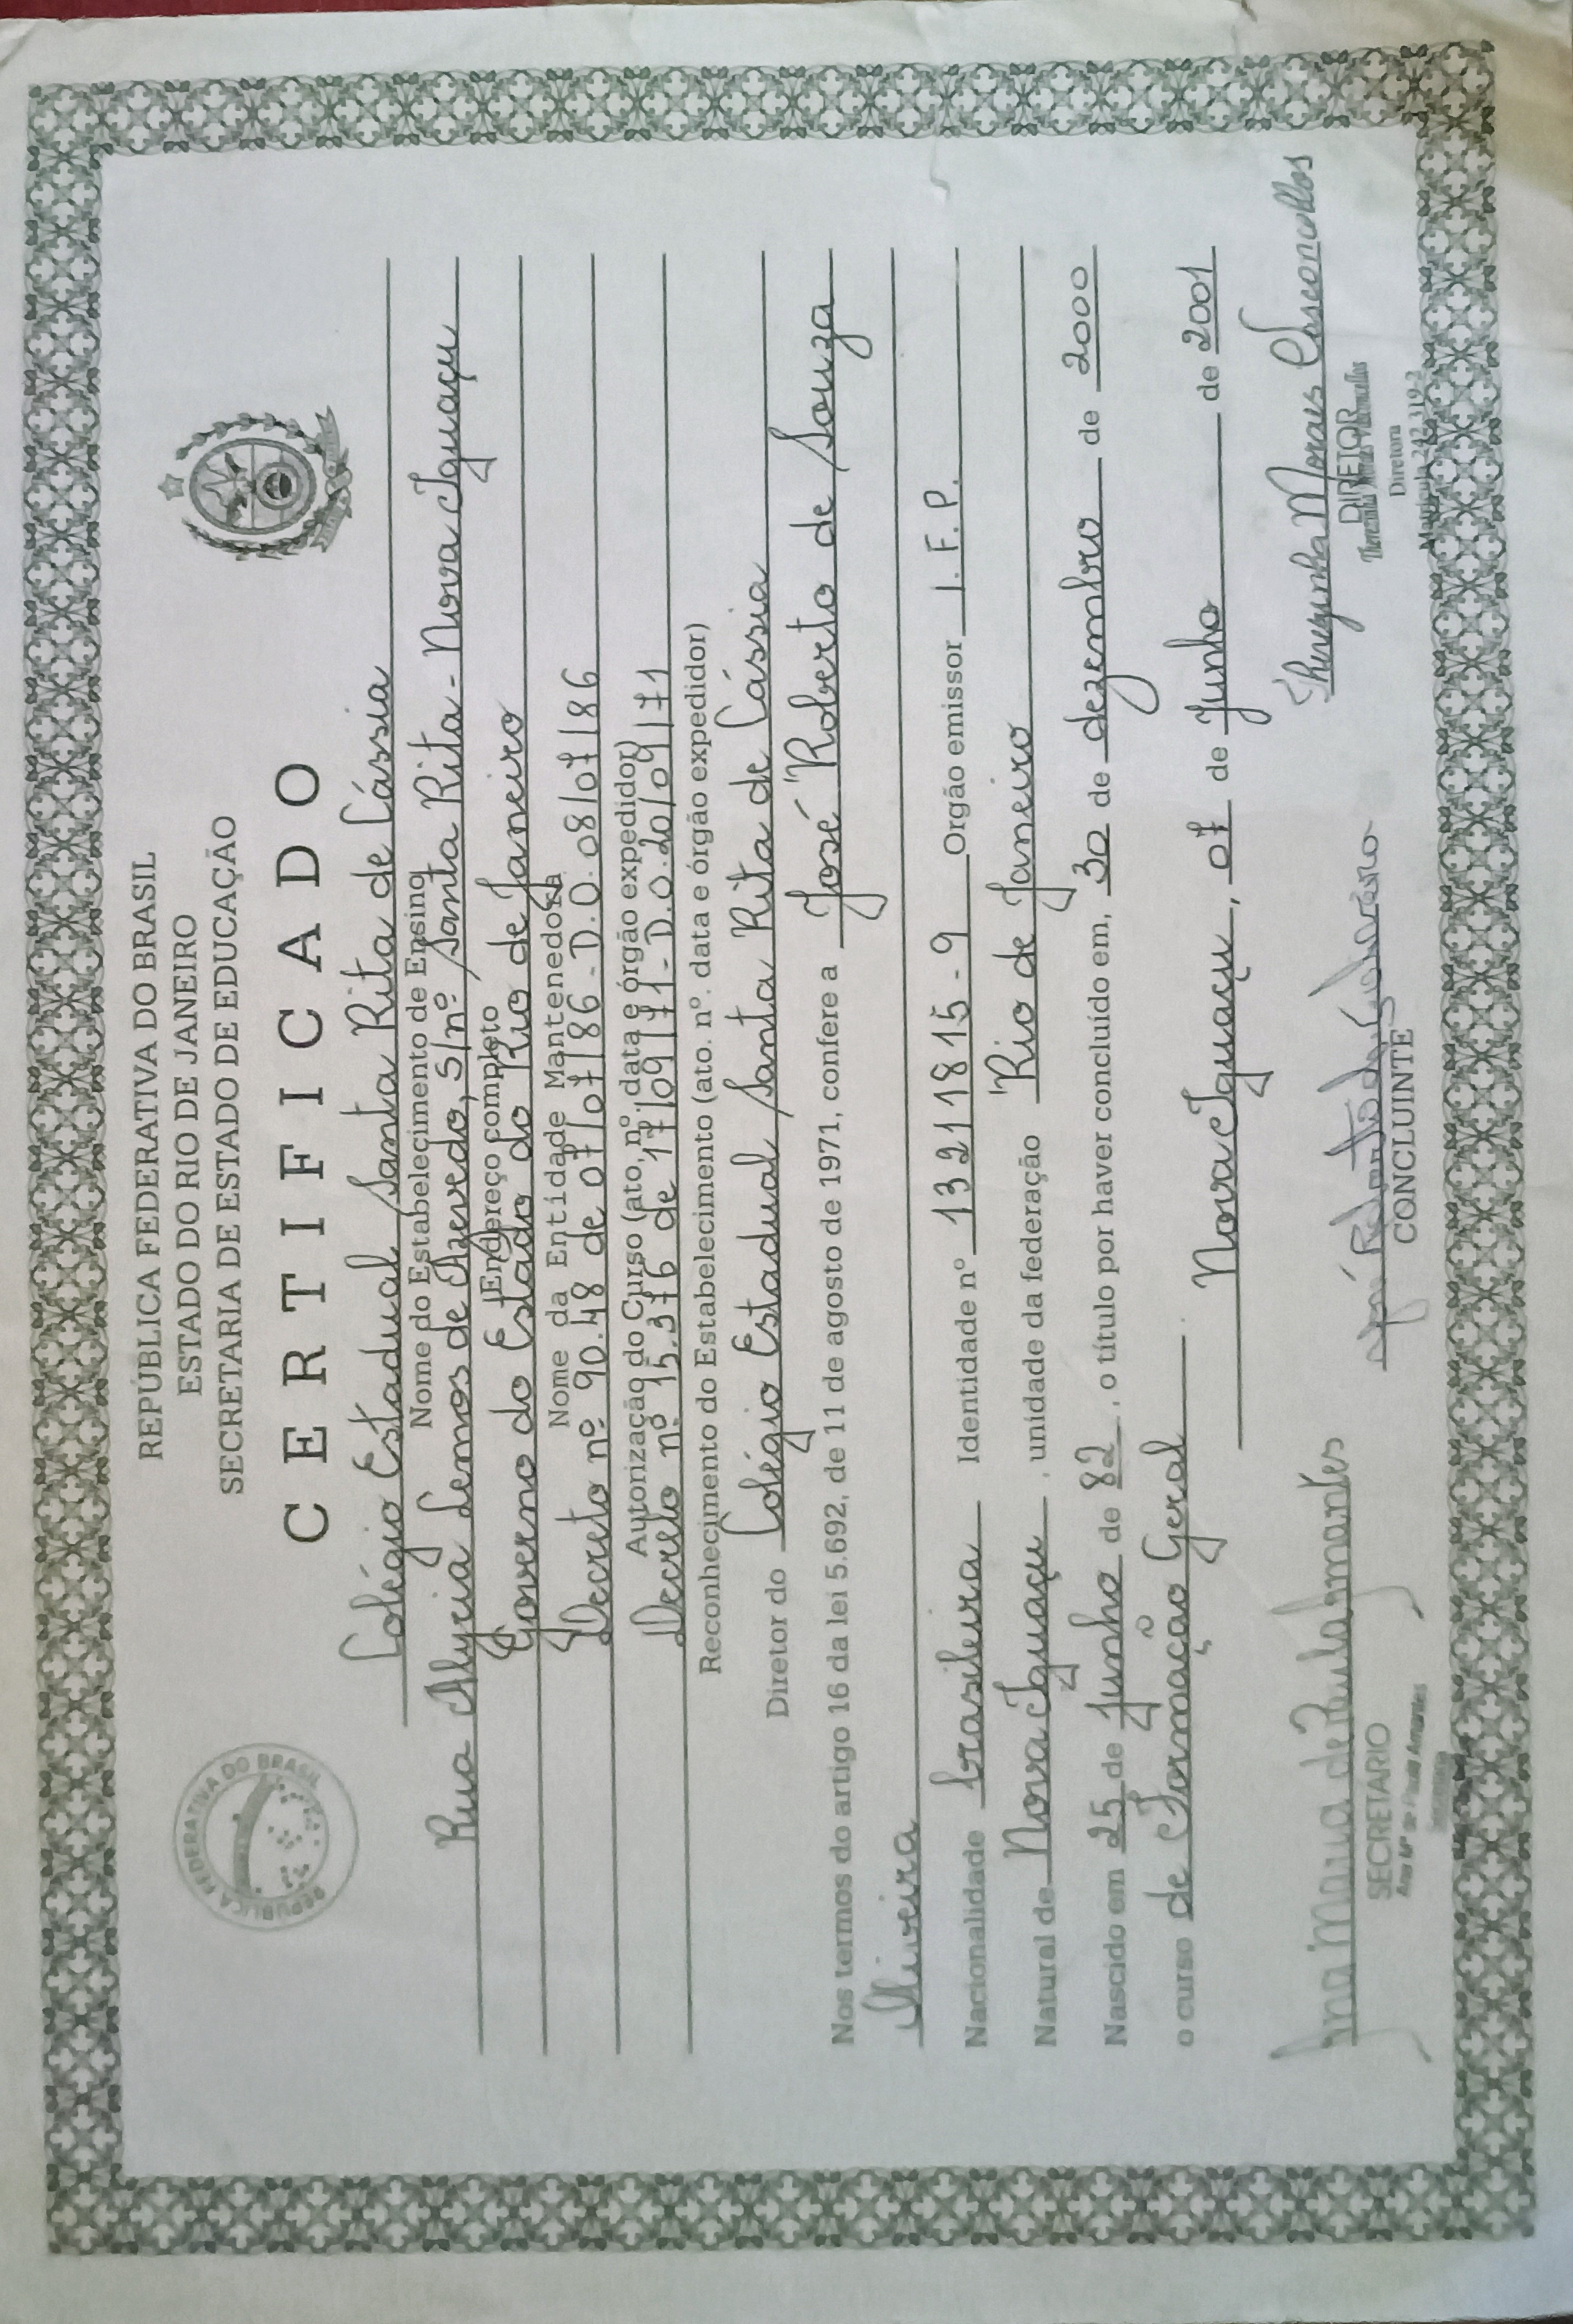 REPÚBLICA FEDERATIVA DO BRASIL
ESTADO DO RIO DE JANEIRO
SECRETARIA DE ESTADO DE EDUCAÇÃO
REPÚBLICA FEDERATIVA DO BRASIL
CERTIFICADO
Colégio Estadual Santa Rita de Cássia
Nome do Estabelecimento de Ensino
Rua Alycia Lemos de Azevedo, s/nº Santa Rita - Nova Iguaçu
Endereço completo
Governo do Estado do Rio de Janeiro
Nome da Entidade Mantenedora
Decreto nº 90.48 de 07/07/86 - D.O. 08/07/86
Autorização do Curso (ato, nº. data e órgão expedidor)
Decreto nº 15.376 de 17/09/71 - D.O. 20/09/71
Reconhecimento do Estabelecimento (ato. nº. data e órgão expedidor)
Diretor do Colégio Estadual Santa Rita de Cássia
Nos termos do artigo 16 da lei 5.692, de 11 de agosto de 1971, confere a José Roberto de Souza
Oliveira
Nacionalidade brasileira Identidade nº 13211815-9 Orgão emissor I.F.P.
Natural de Nova Iguaçu, unidade da federação Rio de Janeiro
Nascido em 25 de junho de 82, o título por haver concluído em, 30 de dezembro de 2000
o curso de Formação Geral.
Nova Iguaçu, 07 de Junho de 2001
Ana Maria de Paula Amantes
SECRETARIO
Ana Mª de Paula Amantes
José Roberto de
CONCLUINTE
Therezinha Morais Vasconcellos
DIRETOR
Therezinha Morais Vasconcellos
Diretora
Matrícula 242.319-2